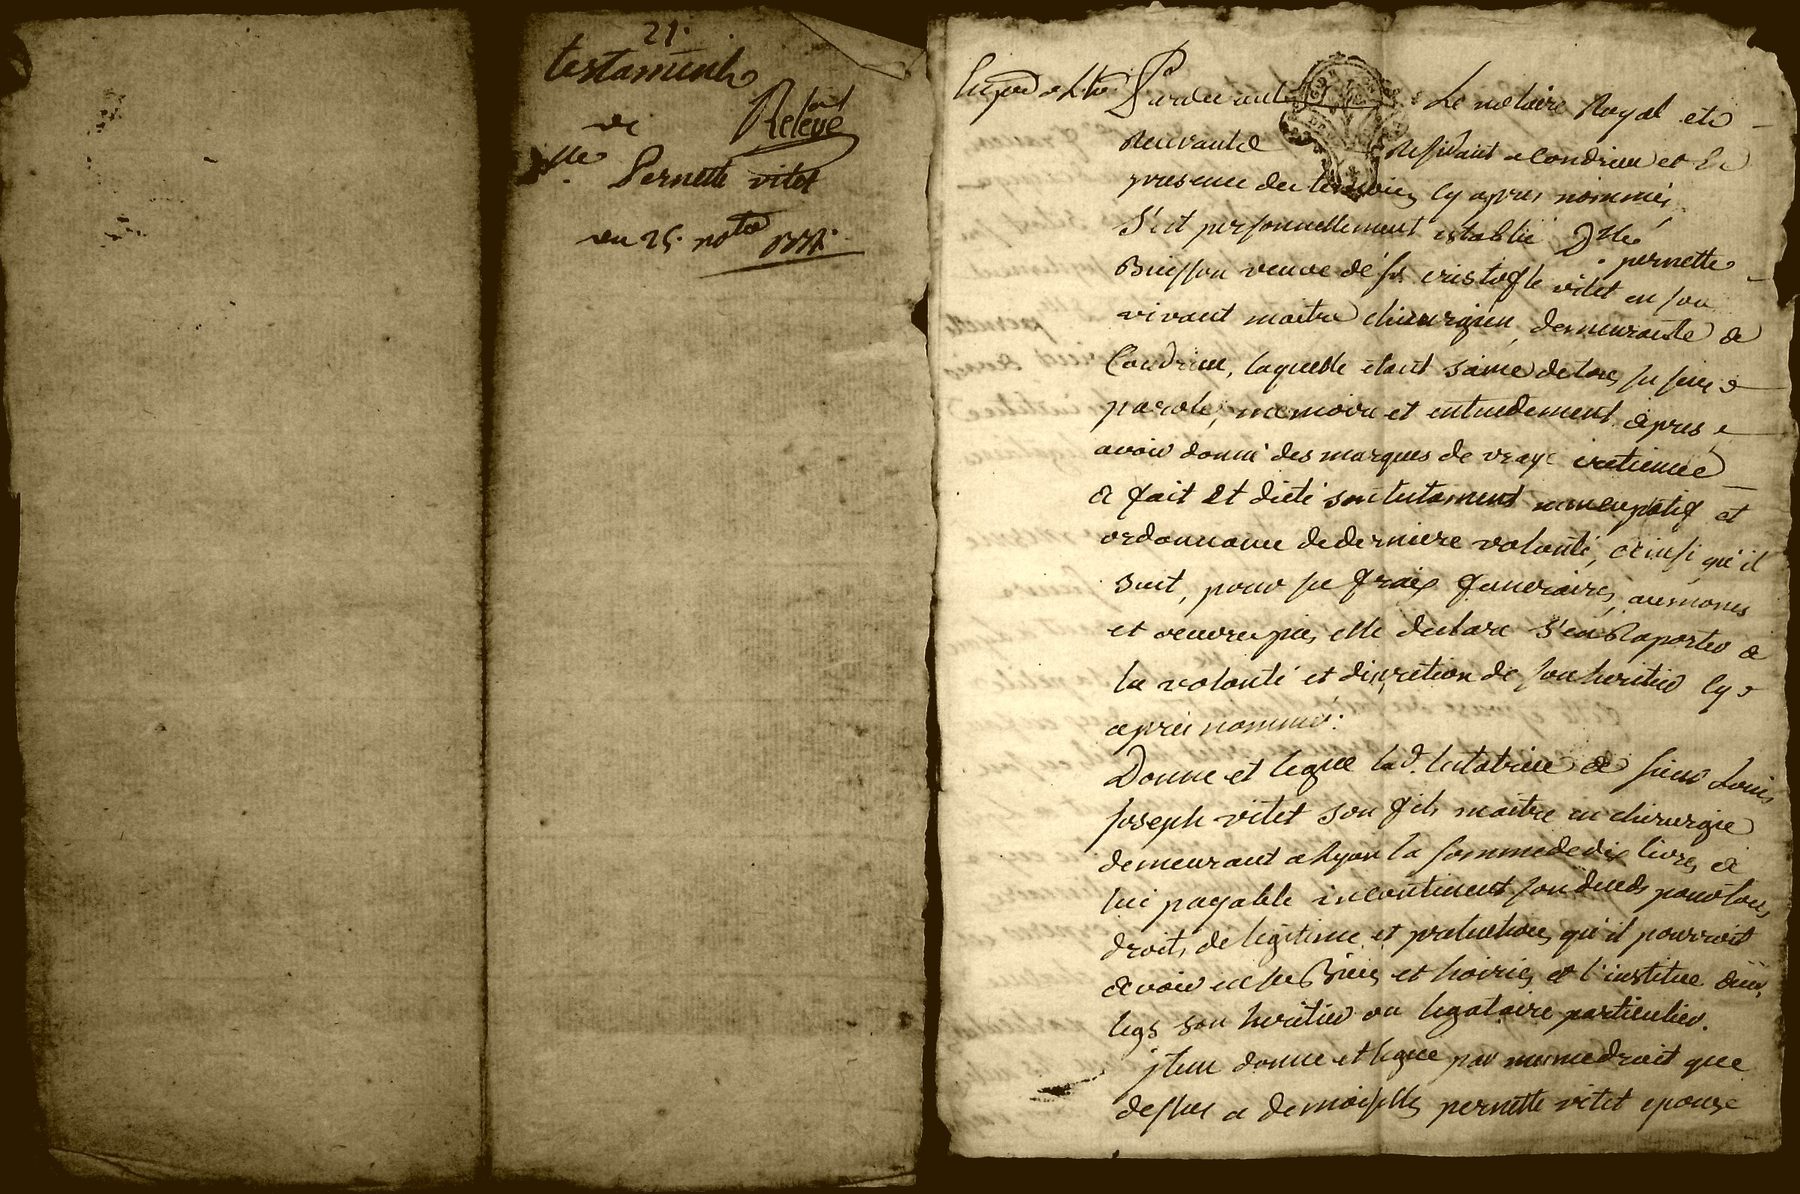 21.
testament
fait
Relevé
de
Dlle
Pernette vitet
du 25. 9bre
Pardevant Le notaire Royal et
Residant a Condrieu et En
presence des temoins cy apres nommés,
S'est personnellement establie Dlle pernette
Buisson veuve de fû cristofle vitet en son
vivant maitre chirurgien, demeurante a
Condrieu, laquelle étant saine de tous ses sens
parole, memoire et entendement apres
avoir donné des marques de vraye cretienne
a fait et dicté son testament nuncupatif et
ordonnance de derniere volonté, ainsi qu'il
suit, pour se fraix funeraires, aumones
et oeuvres pies, elle declare s'en Raporter a
la volonté et discretion de son heritier cy
après nommé.
Donne et legue lad. testatrice a sieur Louis
Joseph vitet son fils maitre en chirurgie
demeurant a Lyon la somme de dix livres a
lui payable incontinent son deceds pour tous
droits de legitime et pretentions qu'il pourroit
avoir en ses Biens et hoiries et l'institue aud.
legs son heritier ou legataire particulier.
jtem donne et legue par meme droit que
dessus a demoiselle pernette vitet epouse